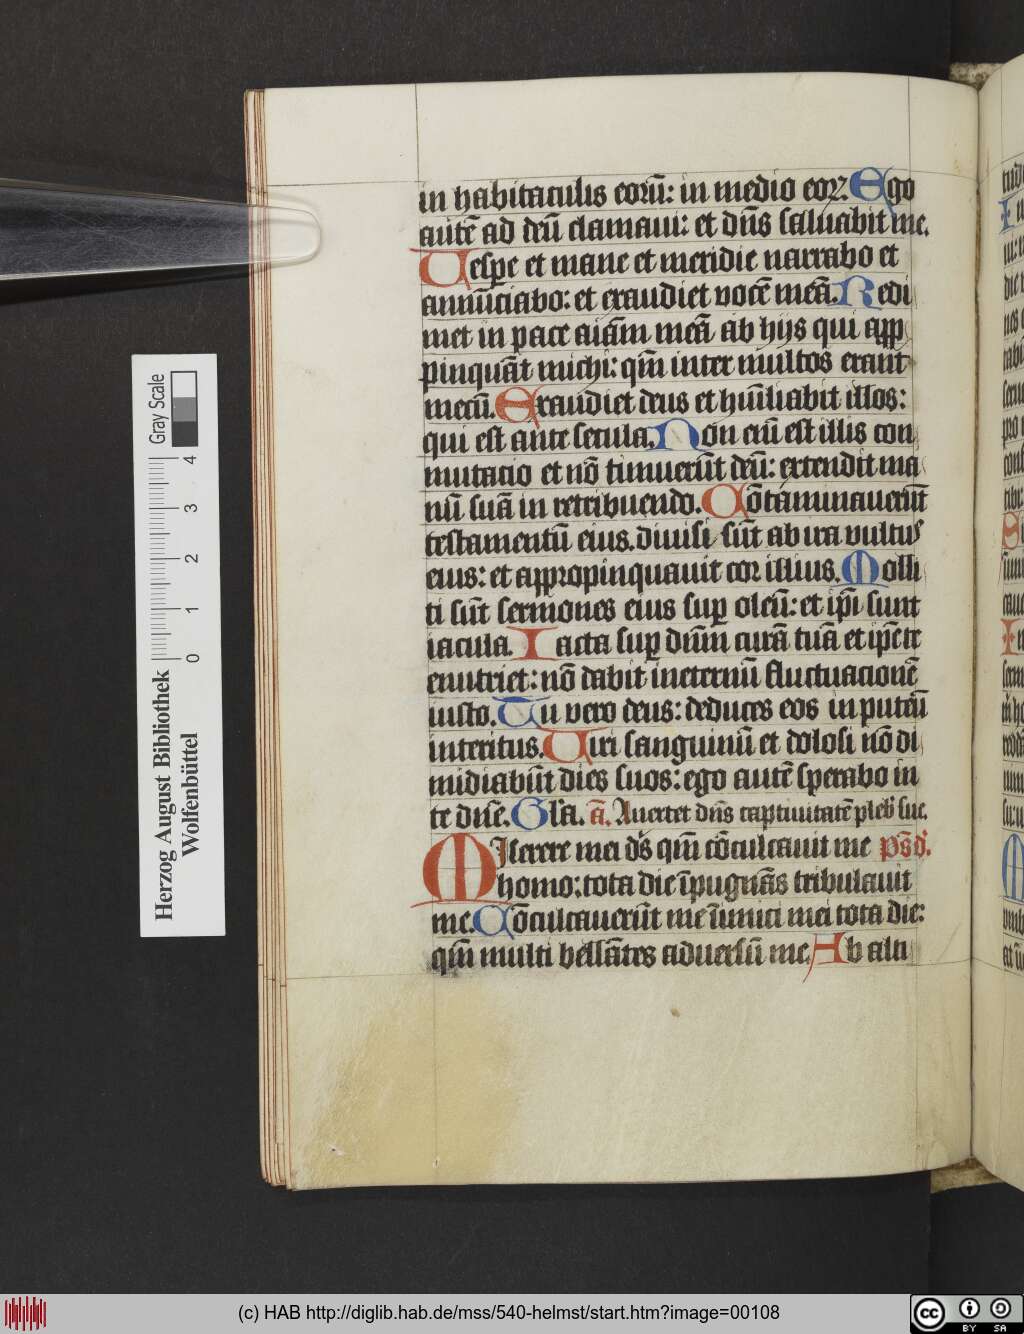 in habitaculis eorū: in medio eoꝝ. Ego
autē ad deū clamaui: et dn̄s saluabit me.
Vespe et mane et meridie narrabo et
annūciabo: et exaudiet vocē meā. Redi
met in pace aīam meā ab hijs qui apꝓ
pinquāt michi: qm̄ inter multos erant
mecū. Exaudiet deus et hūiliabit illos:
qui est ante secula. Non eiū est illis com
mutacio et nō timuerūt deū: extendit ma
nū suā in retribuendo. Cōtaminauerūt
testamentū eius. diuisi sūt ab ira vultus
eius: et appropinquauit cor illius. Molli
ti sūt sermones eius suꝑ oleū: et ip̄i sunt
iacula. Iacta suꝑ dūm curā tuā et ip̄e te
enutriet: nō dabit ineternū fluctuacionē
iusto. Tu vero deus: deduces eos in puteū
interitus. Viri sanguinū et dolosi nō di
midiabūt dies suos: ego autē sperabo in
te dn̄e. Gl̄a. ā. Auertet dn̄s captiuitatē pleb' sue.
Miserere mei d's qm̄ cōculcauit me ps̄ d'.
homo: tota die īpugnās tribulauit
me. Cōculcauerūt me īimici mei tota die:
qm̄ multi bellātes aduersū me. Ab alti
Herzog August Bibliothek
Wolfenbüttel
0 1 2 3 4
Gray Scale
(c) HAB http://diglib.hab.de/mss/540-helmst/start.htm?image=00108
cc BY SA